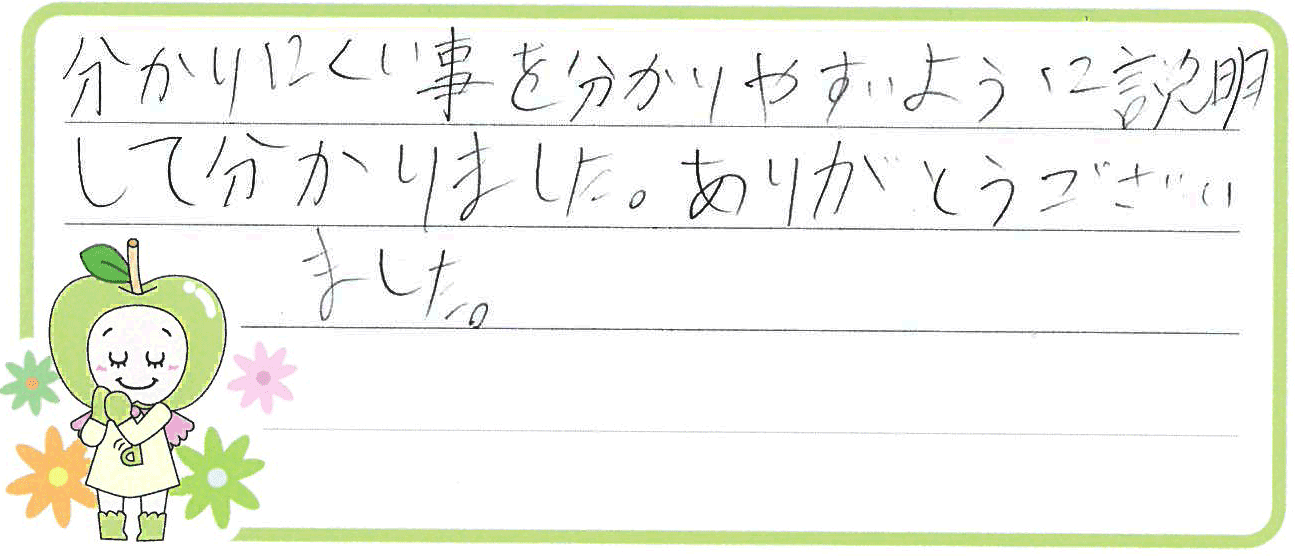 分かりにくい事を分かりやすいように説明
して分かりました。ありがとうござい
ました。